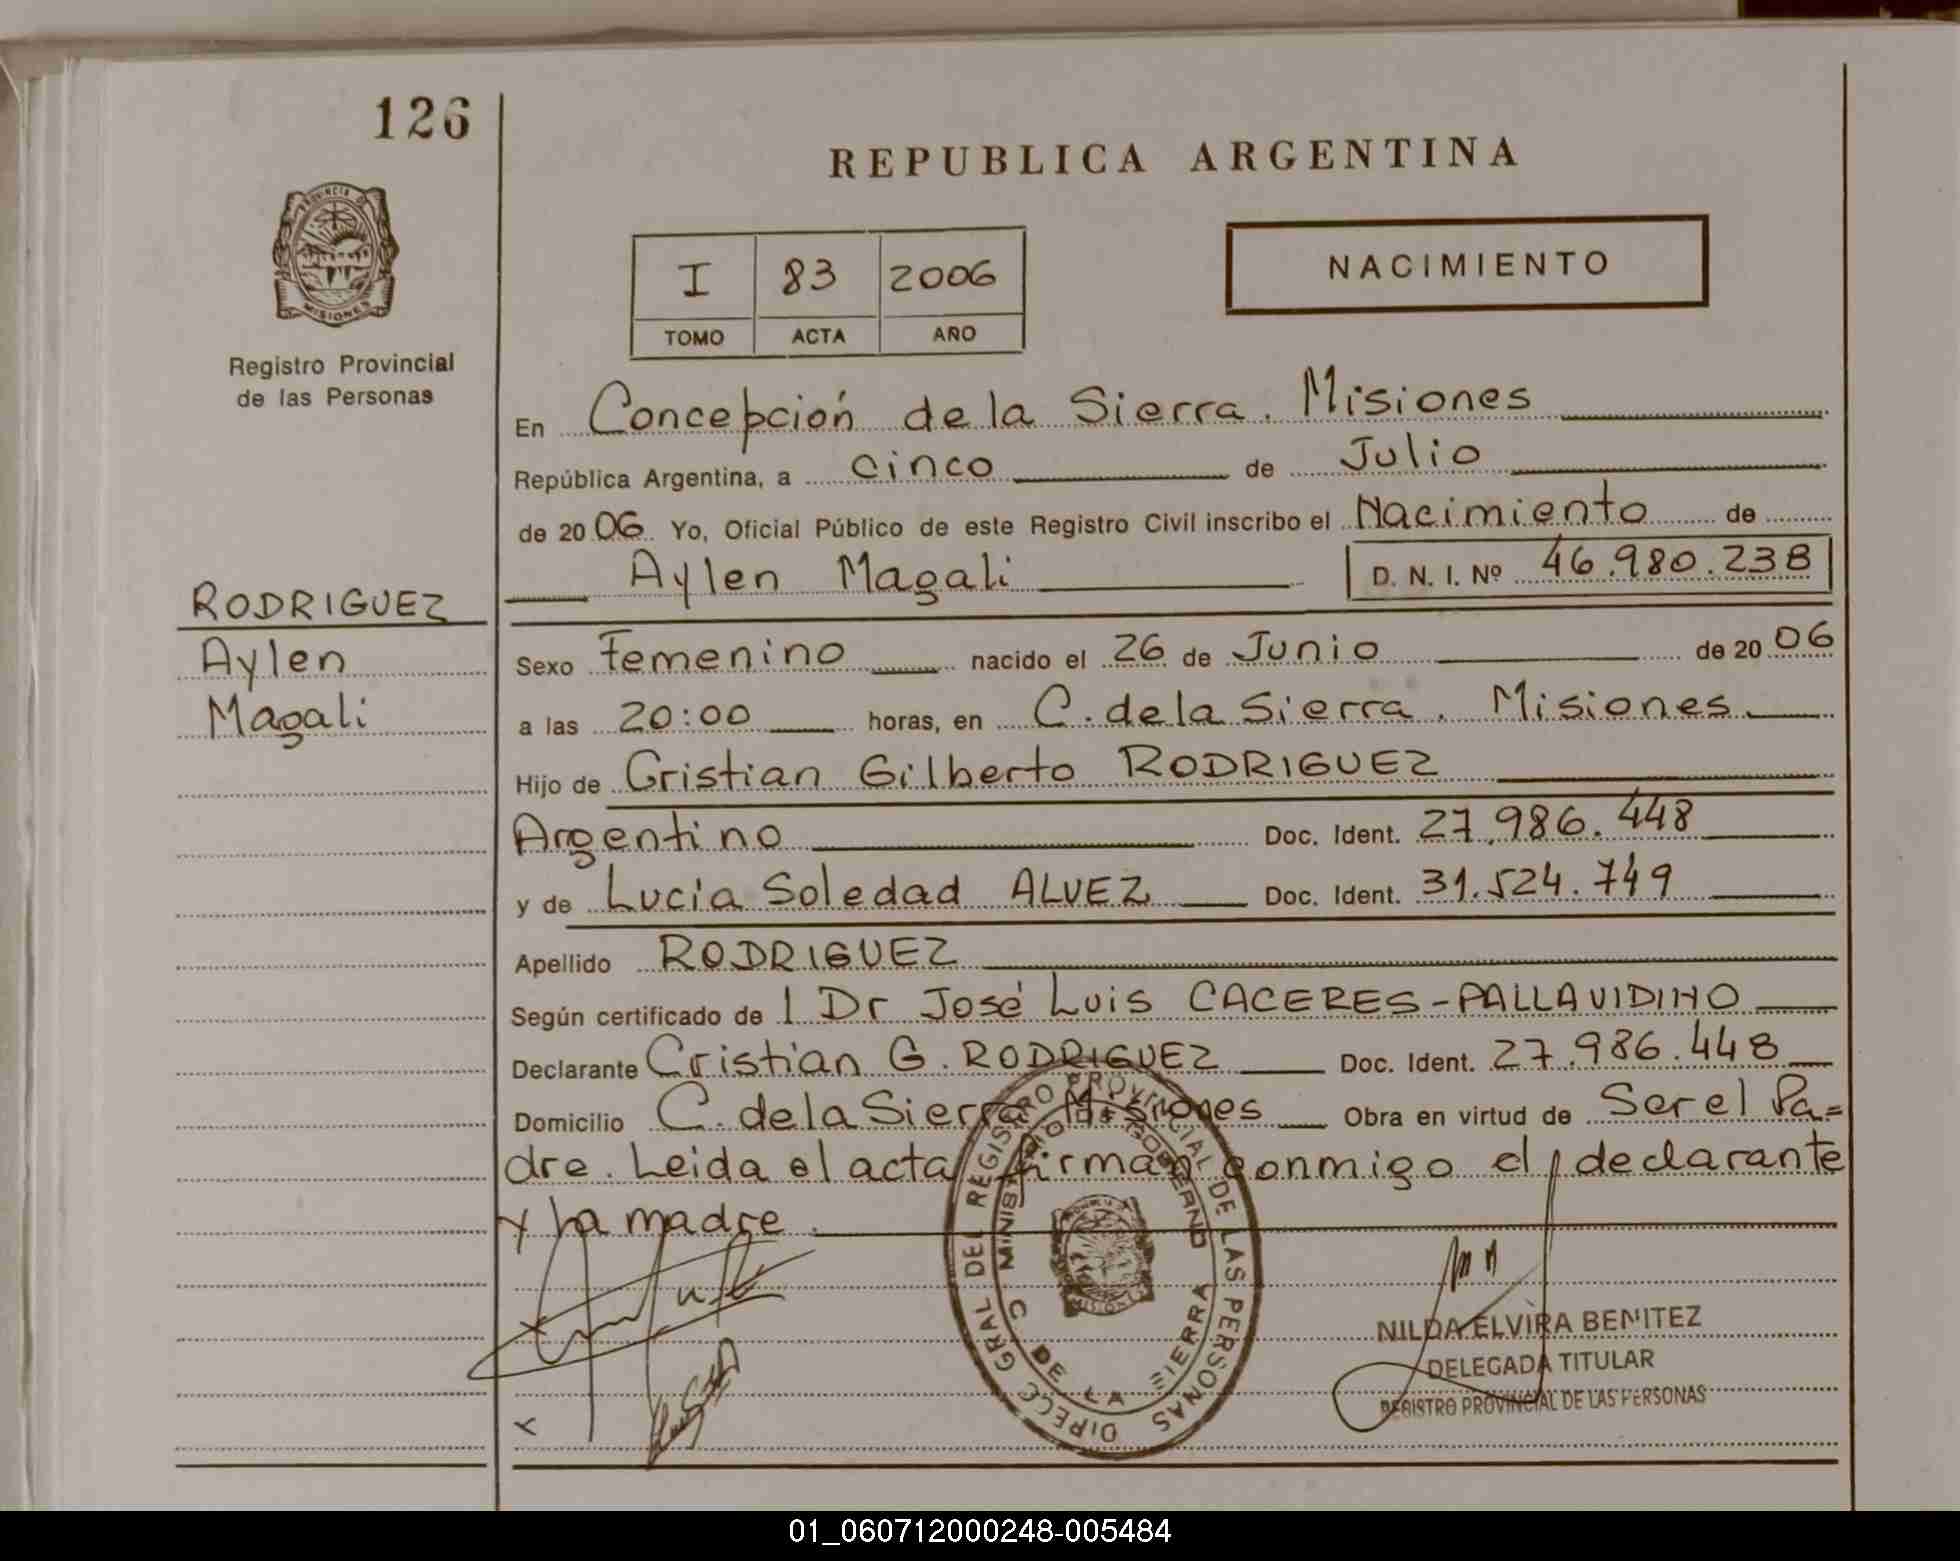 126
REPUBLICA ARGENTINA
PROVINCIA DE
MISIONES
Registro Provincial
de las Personas
I 83 2006
TOMO ACTA AÑO
NACIMIENTO
En Concepción de la Sierra. Misiones
República Argentina, a cinco de Julio
de 2006 Yo, Oficial Público de este Registro Civil inscribo el Nacimiento de
Aylen Magali D. N. I. Nº 46.980.238
RODRIGUEZ
Aylen
Magali
Sexo Femenino nacido el 26 de Junio de 2006
a las 20:00 horas, en C. de la Sierra. Misiones.
Hijo de Cristian Gilberto RODRIGUEZ
Argentino Doc. Ident. 27.986.448
y de Lucia Soledad ALVEZ Doc. Ident. 31.524.749
Apellido RODRIGUEZ
Según certificado de l Dr José Luis CACERES-PALLAVIDINO
Declarante Cristian G. RODRIGUEZ Doc. Ident. 27.986.448
Domicilio C. de la Sierra Misiones Obra en virtud de Ser el Pa=
dre. Leida el acta firman conmigo el declarante
y la madre.
DIRECC GRAL DEL REGISTRO PROVINCIAL DE LAS PERSONAS
MINISTERIO DE GOBIERNO
C DE LA SIERRA
MISIONES
NILDA ELVIRA BENITEZ
DELEGADA TITULAR
REGISTRO PROVINCIAL DE LAS PERSONAS
01_060712000248-005484